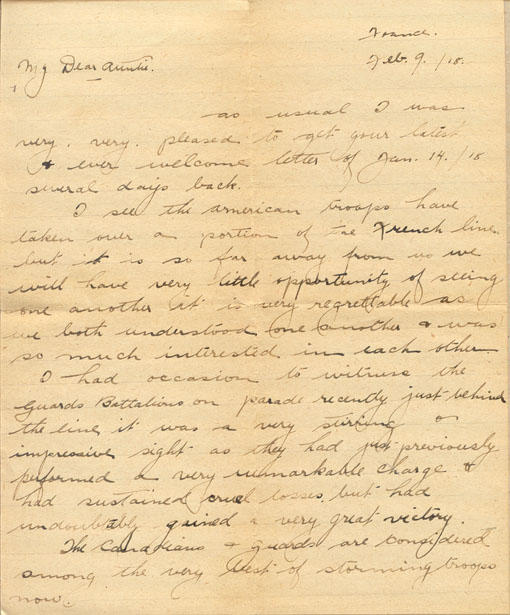 France.
Feb. 9. /18.
My Dear Auntie.
as usual I was
very, very, pleased to get your latest
& ever welcome letter of Jan. 14. /18
several days back.
I see the american troops have
taken over a portion of the French line
but it is so far away from us we
will have very little opportunity of seeing
one another it is very regrettable as
we both understood one another & was
so much interested in each other.
I had occasion to witness the
Guards Battalions on parade recently just behind
the line it was a very stirring &
impressive sight as they had just previously
performed a very remarkable charge &
had sustained cruel losses, but had
undoubtably gained a very great victory.
The Canadians & guards are considered
among the very best of storming troops
now.